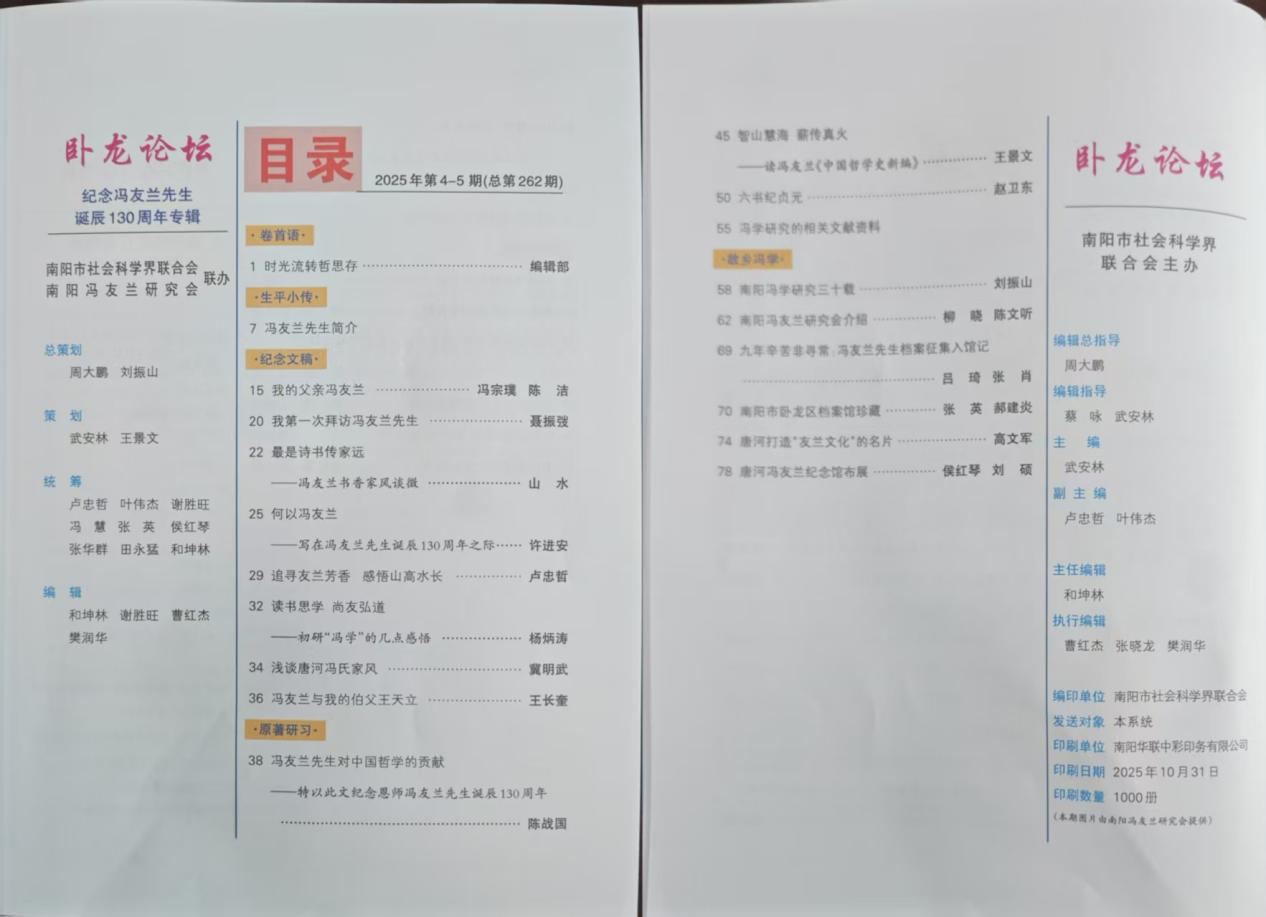 卧龙论坛
纪念冯友兰先生
诞辰130周年专辑
南阳市社会科学界联合会
南阳冯友兰研究会
联办
总策划
周大鹏 刘振山
策 划
武安林 王景文
统 筹
卢忠哲 叶伟杰 谢胜旺
冯 慧 张 英 侯红琴
张华群 田永猛 和坤林
编 辑
和坤林 谢胜旺 曹红杰
樊润华
目录
2025年第4-5期(总第262期)
·卷首语·
1 时光流转哲思存 编辑部
·生平小传·
7 冯友兰先生简介
·纪念文稿·
15 我的父亲冯友兰 冯宗璞 陈 洁
20 我第一次拜访冯友兰先生 聂振弢
22 最是诗书传家远
——冯友兰书香家风谈微 山 水
25 何以冯友兰
——写在冯友兰先生诞辰130周年之际 许进安
29 追寻友兰芳香 感悟山高水长 卢忠哲
32 读书思学 尚友弘道
——初研“冯学”的几点感悟 杨炳涛
34 浅谈唐河冯氏家风 冀明武
36 冯友兰与我的伯父王天立 王长奎
·原著研习·
38 冯友兰先生对中国哲学的贡献
——特以此文纪念恩师冯友兰先生诞辰130周年
陈战国
45 智山慧海 薪传真火
——读冯友兰《中国哲学史新编》 王景文
50 六书纪贞元 赵卫东
55 冯学研究的相关文献资料
·故乡冯学·
58 南阳冯学研究三十载 刘振山
62 南阳冯友兰研究会介绍 柳 晓 陈文昕
69 九年辛苦非寻常:冯友兰先生档案征集入馆记
吕 琦 张 肖
70 南阳市卧龙区档案馆珍藏 张 英 郝建炎
74 唐河打造“友兰文化”的名片 高文军
78 唐河冯友兰纪念馆布展 侯红琴 刘 硕
卧龙论坛
南阳市社会科学界
联合会主办
编辑总指导
周大鹏
编辑指导
蔡 咏 武安林
主 编
武安林
副主编
卢忠哲 叶伟杰
主任编辑
和坤林
执行编辑
曹红杰 张晓龙 樊润华
编印单位 南阳市社会科学界联合会
发送对象 本系统
印刷单位 南阳华联中彩印务有限公司
印刷日期 2025年10月31日
印刷数量 1000册
(本期图片由南阳冯友兰研究会提供)